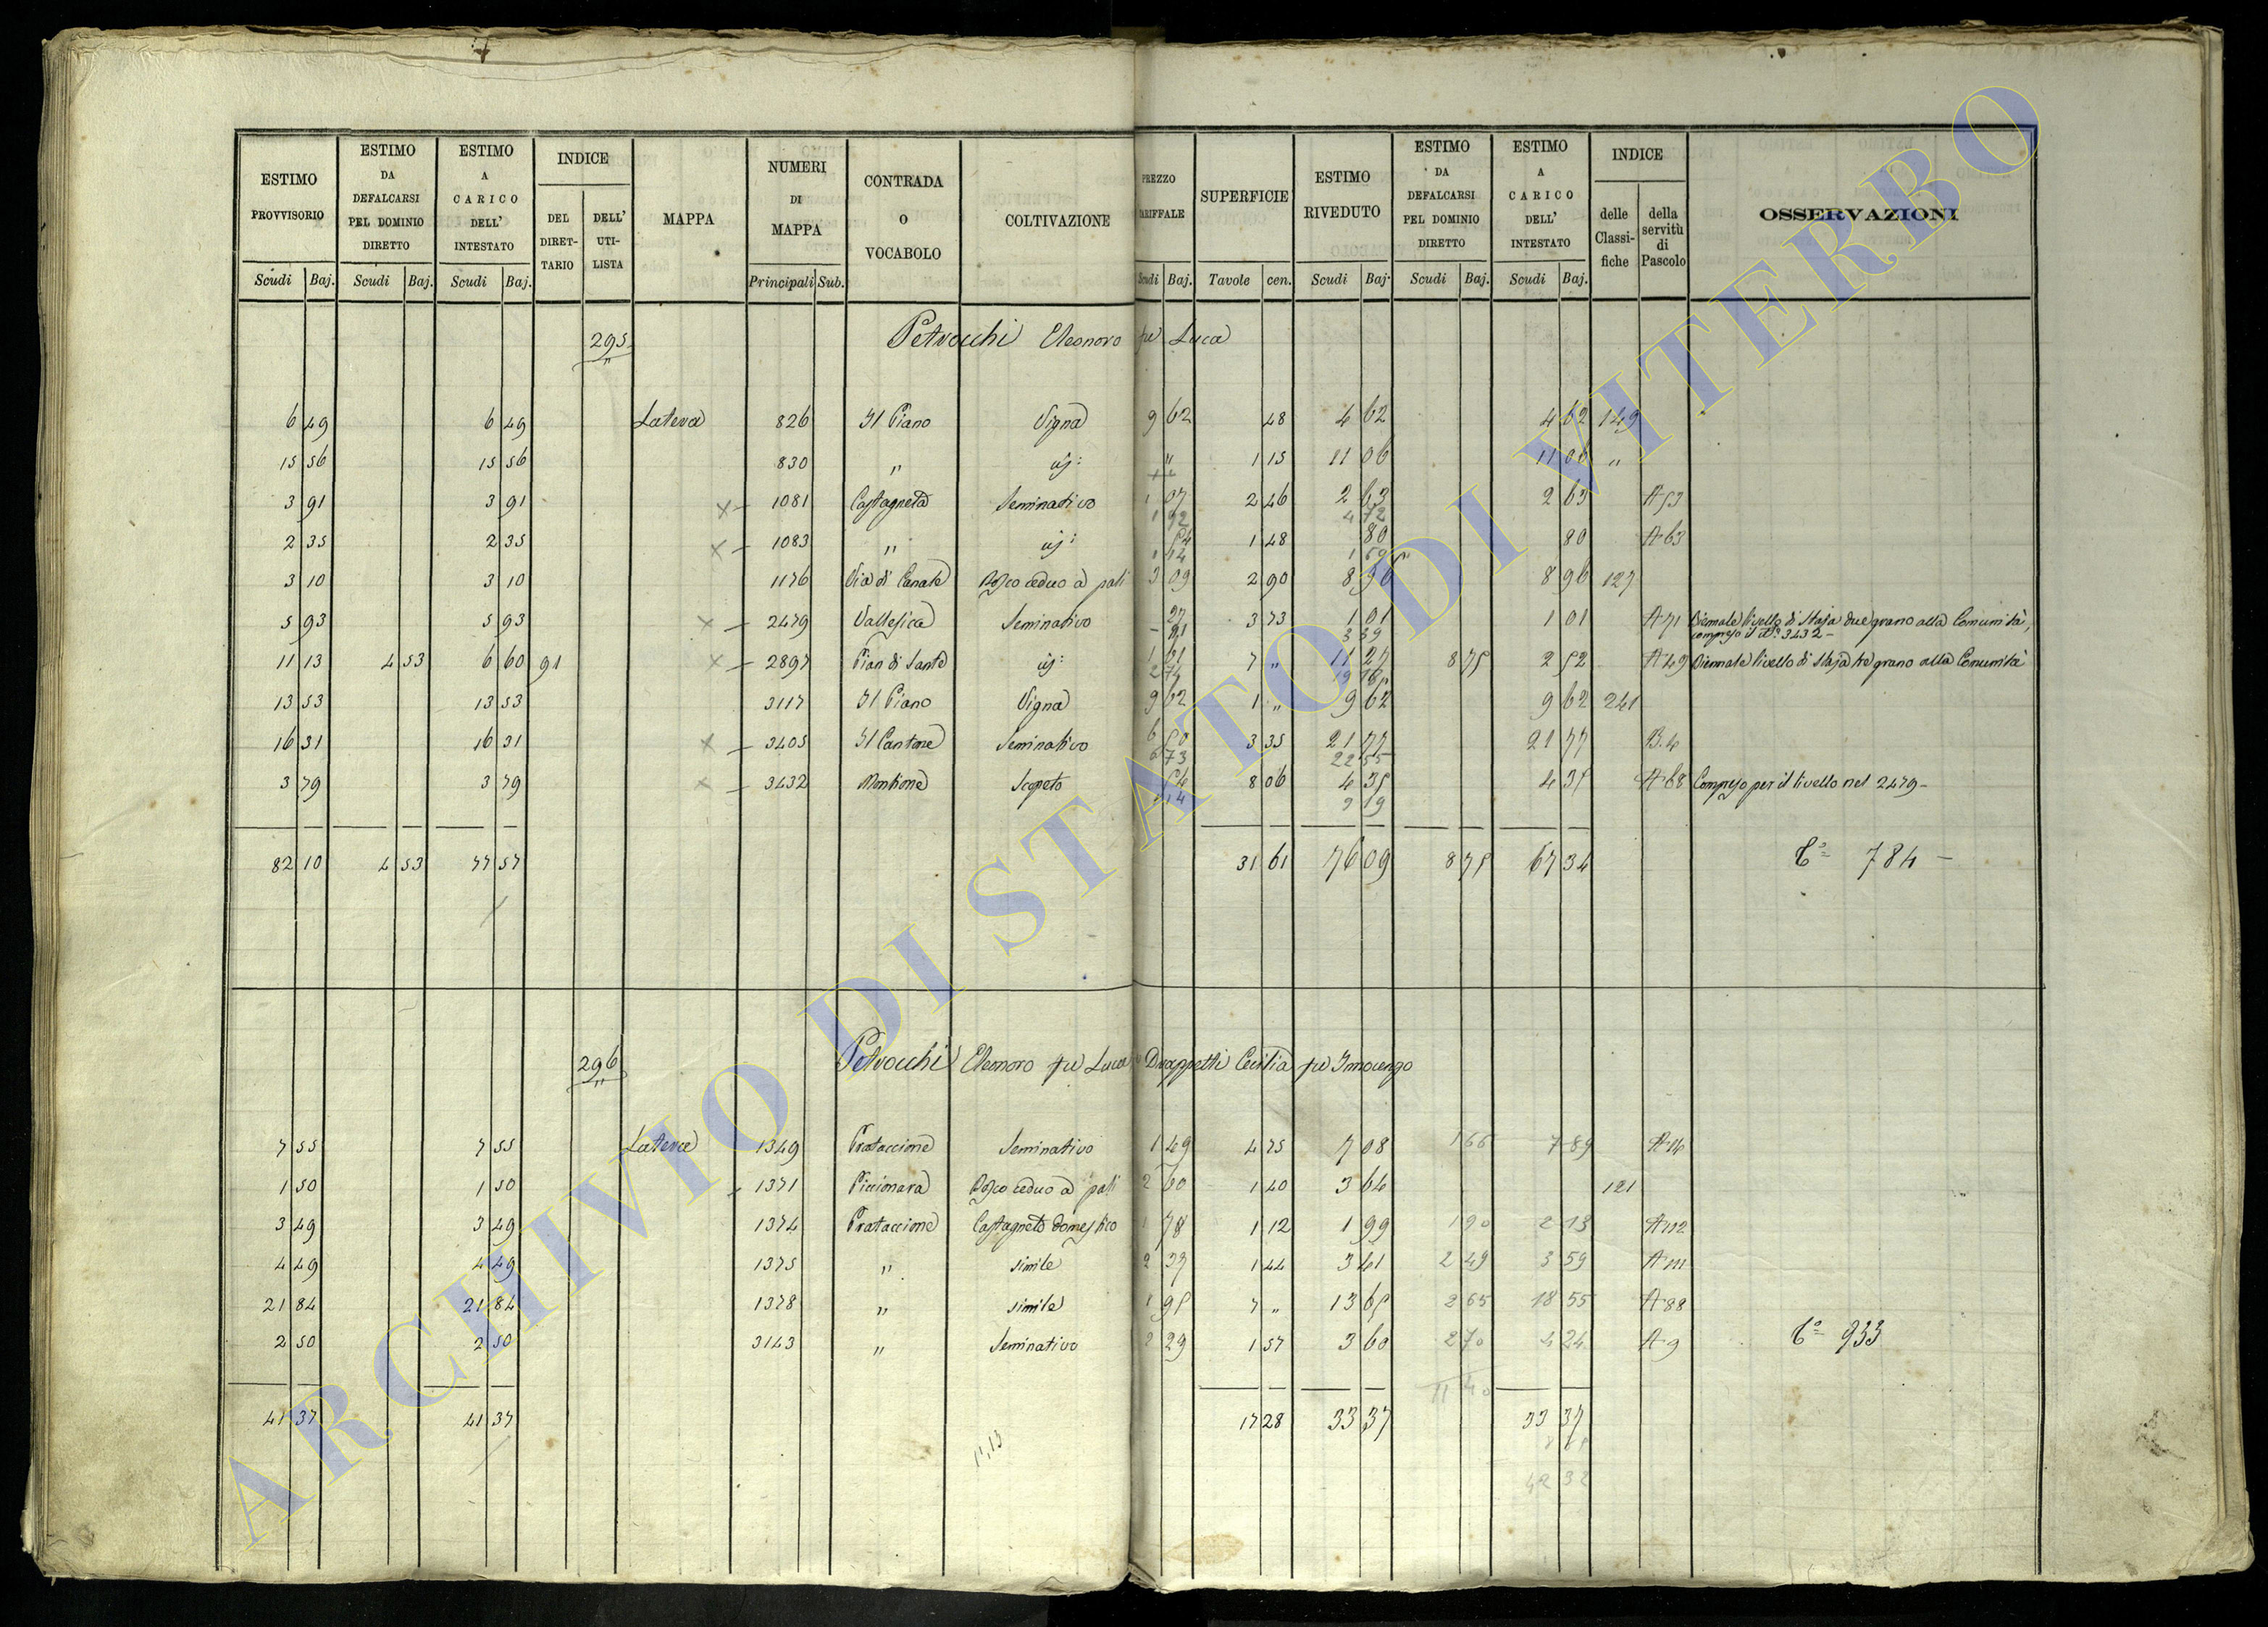 ESTIMO PROVVISORIO | ESTIMO DA DEFALCARSI PEL DOMINIO DIRETTO | ESTIMO A CARICO DELL' INTESTATO | INDICE | MAPPA | NUMERI DI MAPPA | CONTRADA O VOCABOLO | COLTIVAZIONE | PREZZO TARIFFALE | SUPERFICIE | ESTIMO RIVEDUTO | ESTIMO DA DEFALCARSI PEL DOMINIO DIRETTO | ESTIMO A CARICO DELL' INTESTATO | INDICE | OSSERVAZIONI
DEL DIRETTARIO | DELL' UTILISTA | delle Classifiche | della servitù di Pascolo
Scudi Baj. | Scudi Baj. | Scudi Baj. | Principali Sub. | Scudi Baj. | Tavole cen. | Scudi Baj. | Scudi Baj. | Scudi Baj.
295 Petrocchi Eleonoro fu Luca
6 49 | 6 49 | Latera | 826 | Il Piano | Vigna | 9 62 | 48 | 4 62 | 4 62 | 149
15 56 | 15 56 | 830 | " | id: | " | 1 15 | 11 06 | 11 06 | "
3 91 | 3 91 | x | 1081 | Castagneta | Seminativo | 1 07 | 2 46 | 2 63 | 2 63 | A 53
1 92 | 4 72
2 35 | 2 35 | x | 1083 | " | id: | 54 | 1 48 | 80 | 80 | A 63
1 14
3 10 | 3 10 | 1176 | Via di Canale | Bosco ceduo a pali | 3 09 | 2 90 | 8 96 | 8 96 | 127
5 93 | 5 93 | x | 2479 | Vallesica | Seminativo | 27 | 3 73 | 1 01 | 1 01 | A 71 | Biennale livello di Staja due grano alla Comunità,
91 | 3 39 | compreso il N° 3432 –
11 13 | 4 53 | 6 60 | 91 | x | 2897 | Pian di Sante | id: | 1 61 | 7 " | 11 27 | 8 75 | 2 52 | A 49 | Biennale livello di Staja tre grano alla Comunità
13 53 | 13 53 | 3117 | Il Piano | Vigna | 9 62 | 1 " | 9 62 | 9 62 | 241
16 31 | 16 31 | x | 3405 | Il Cantone | Seminativo | 6 50 | 3 35 | 21 77 | 21 77 | B. 4
6 73 | 22 55
3 79 | 3 79 | x | 3432 | Montione | Scopeto | 54 | 8 06 | 4 35 | 4 35 | A 68 | Compreso per il livello nel 2479 –
9 19
82 10 | 4 53 | 77 57 | 31 61 | 76 09 | 8 75 | 67 34 | 784 –
296 Petrocchi Eleonoro fu Luca e Drappetti Cecilia fu Innocenzo
7 55 | 7 55 | Latera | 1349 | Prataccione | Seminativo | 1 49 | 4 75 | 7 08 | 1 66 | 7 89 | A 14
1 50 | 1 50 | 1371 | Piccionara | Bosco ceduo a pali | 2 60 | 1 40 | 3 64 | 121
3 49 | 3 49 | 1374 | Prataccione | Castagneto domestico | 1 78 | 1 12 | 1 99 | 1 90 | 2 13 | A 112
4 49 | 4 49 | 1375 | " | simile | 2 37 | 1 44 | 3 41 | 2 49 | 3 59 | A 111
21 84 | 21 84 | 1378 | " | simile | 1 95 | 7 " | 13 65 | 2 65 | 18 55 | A 88
2 50 | 2 50 | 3143 | " | Seminativo | 2 29 | 1 57 | 3 60 | 2 70 | 4 24 | A 9 | 933
11 40
41 37 | 41 37 | 17 28 | 33 37 | 33 37
42 32
ARCHIVIO DI STATO DI VITERBO